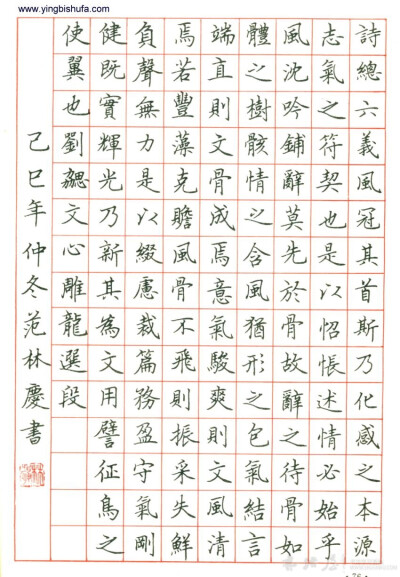 www.yingbishufa.com
詩總六義風冠其首斯乃化感之本源
志氣之符契也是以怊悵述情必始乎
風沈吟鋪辭莫先於骨故辭之待骨如
體之樹骸情之含風猶形之包氣結言
端直則文骨成焉意氣駿爽則文風清
焉若豐藻克贍風骨不飛則振采失鮮
負聲無力是以綴慮裁篇務盈守氣剛
健既實輝光乃新其為文用譬征鳥之
使翼也劉勰文心雕龍選段
己巳年仲冬范林慶書